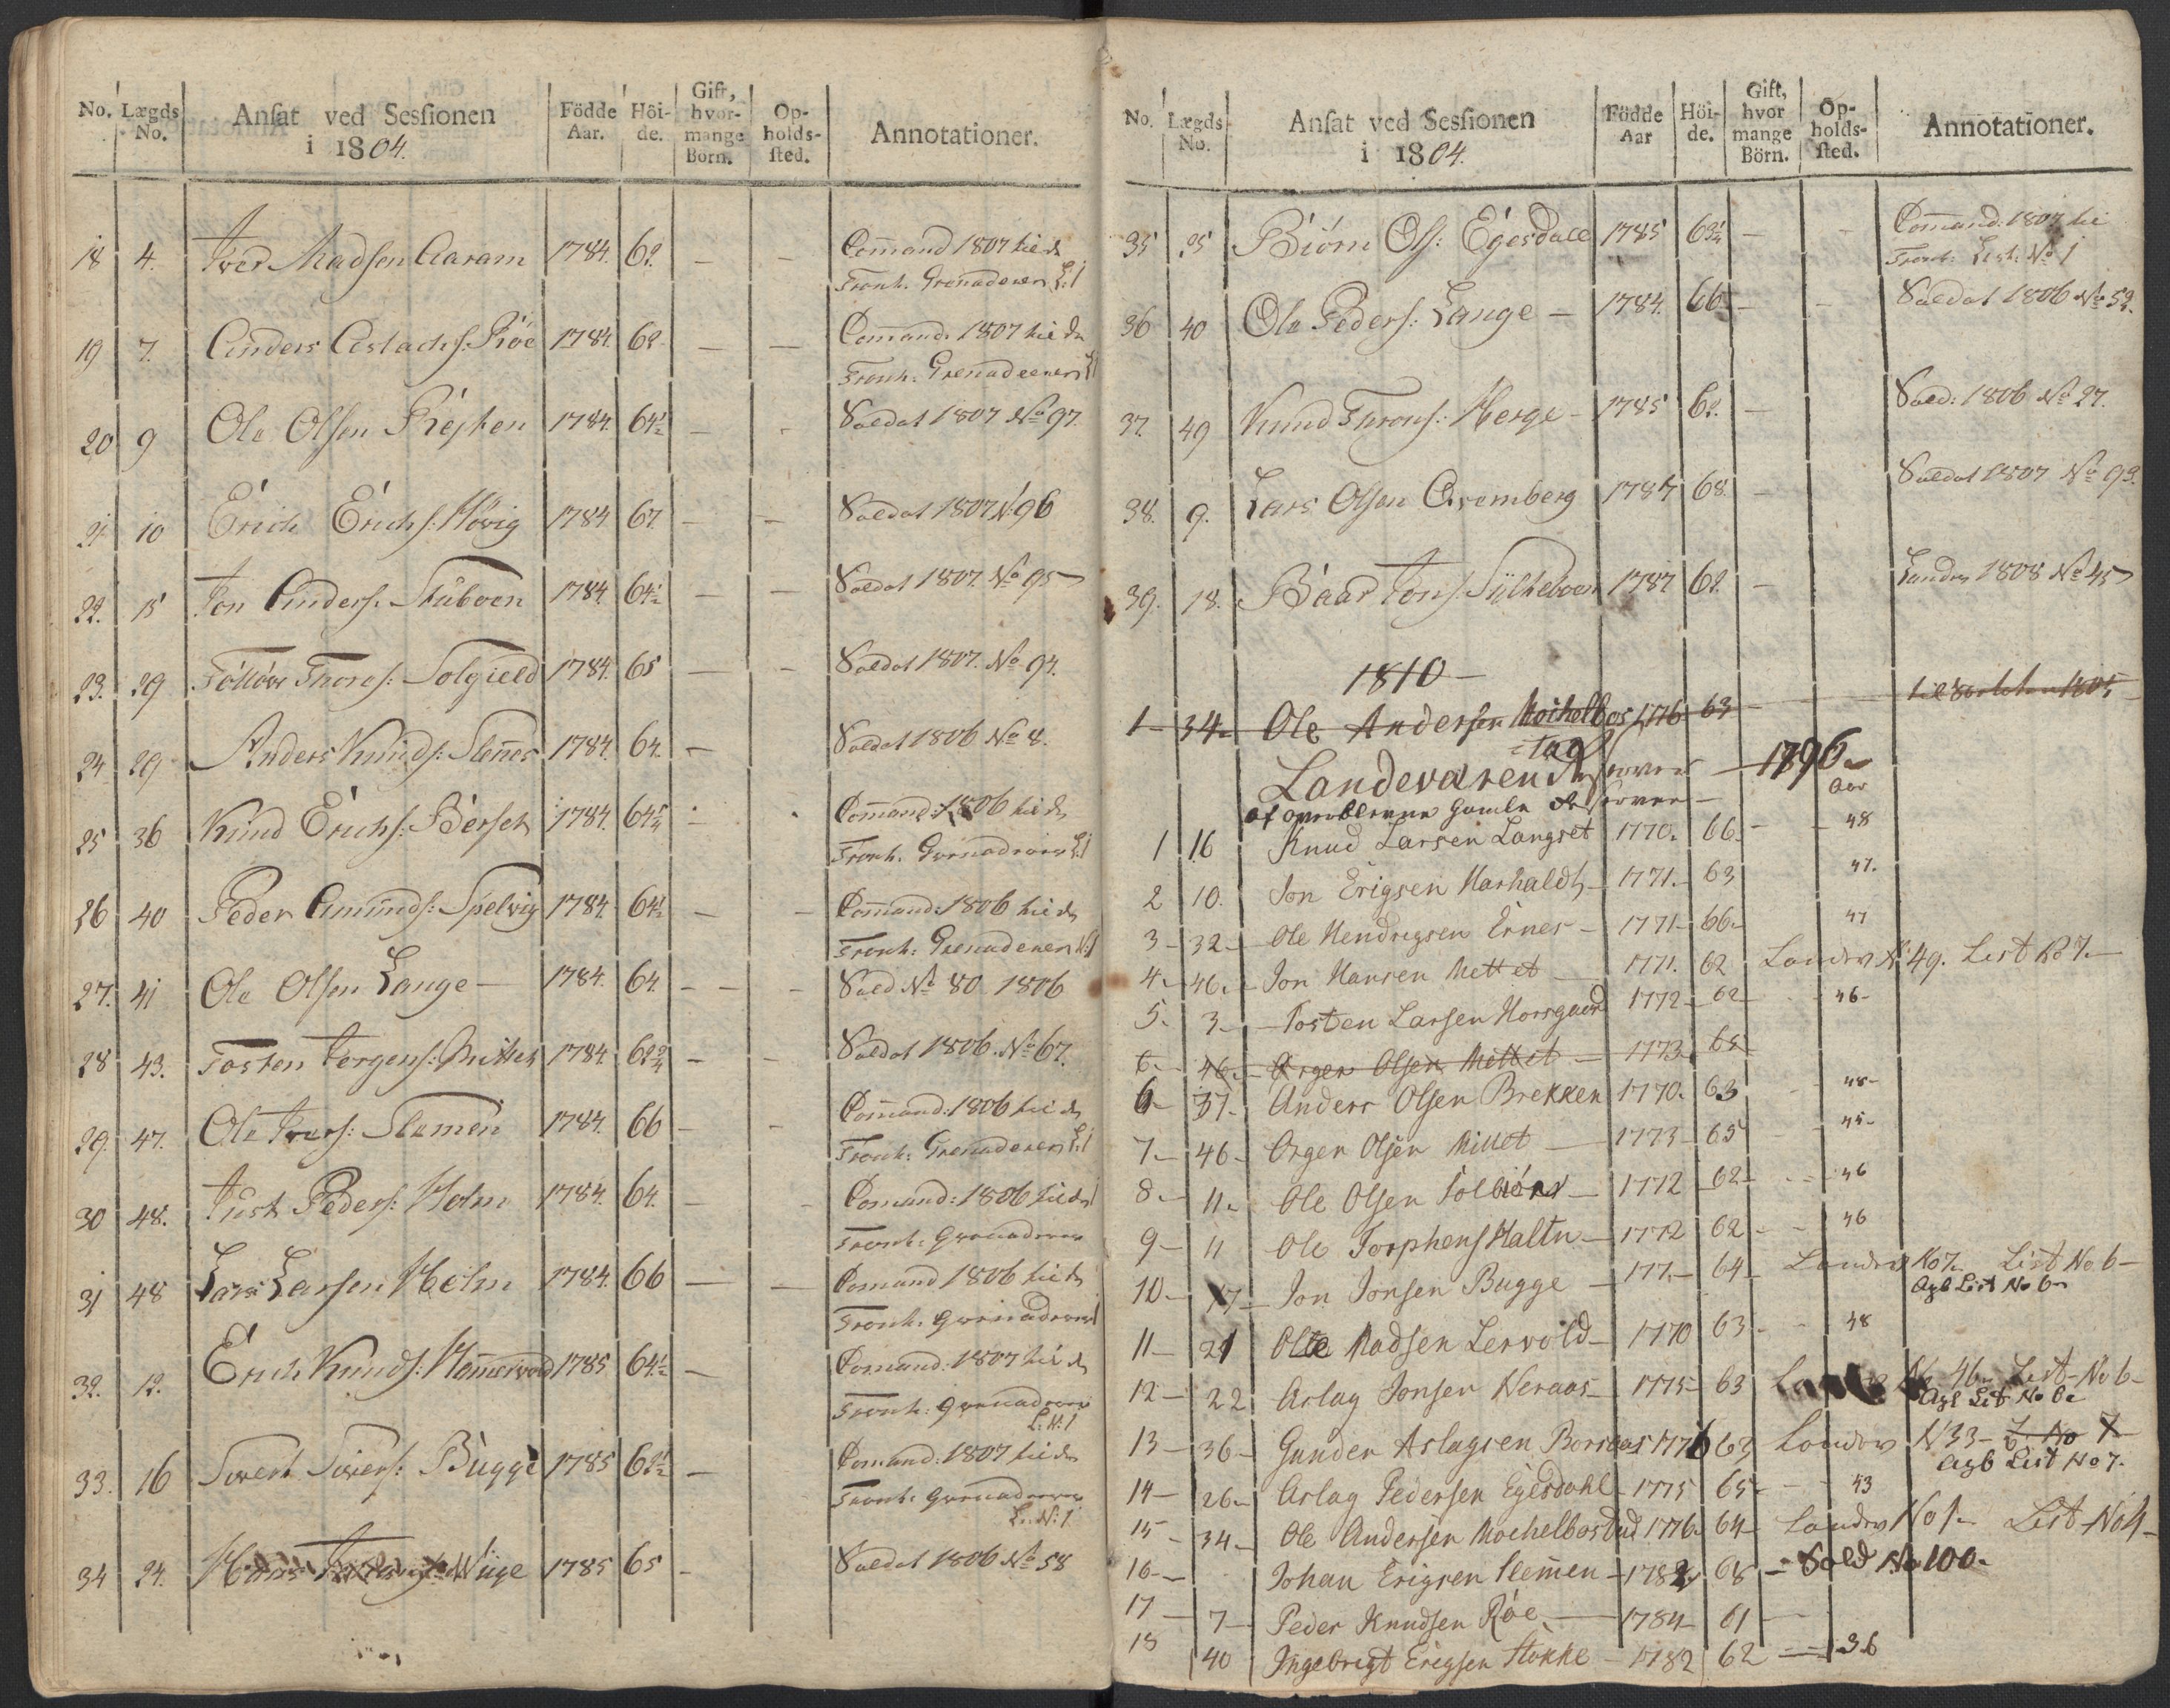 No. Lægds No. Ansat ved Sessionen i 1804. Födde Aar. Höi-de. Gift, hvor-mange Börn. Op-holds-sted. Annotationer.
18 4. Iver Madsen Aaram 1784. 62. — — Command 1807 til de
Tronh. Grenaderer L: 1
19 7. Anders Aslachs: Röe 1784. 62. — — Command: 1807 til de
Tronh: Grenadeerer L 1
20 9 Ole Olsen 1784. 64½ — - Soldat 1807 No 97.
21 10 Erich Erichs: Hövig 1784 67. — — Soldat 1807 N: 96
22. 15 Jon Anders: Stüboen 1784. 64½ — — Soldat 1807. No 95
23. 29 Thores: Solgield 1784. 65 — — Soldat 1807. No 94.
24 29 Anders Knuds: 1784. 64. — Soldat 1806 No 8.
25 36 Knud Erichs: 1784. 64¾ - . Command: 1806 til de
Tronh. Grenaderer L: 1
26 40 Peder Amunds: Spelvig 1784. 64½ — — Command: 1806 til de
Tronh: Grenaderer N: 1
27. 41 Ole Olsen Lange — 1784. 64. — — Sold No 80 1806
28 43. Tosten Jörgens: Mittet 1784. 62¾ — — Soldat 1806. No 67.
29. 47. Ole Ivers: Slemen 1784. 66 — — Command: 1806 til de
Tronh: Grenaderer L: 1
30 48. Just Peders: Holm 1784. 64. — - Comand: 1806 til de
Tronh: Grenaderer
31 48 Lars Larsen Holm 1784. 66 — — Comand 1806 til de
Tronh. Grenaderer 1
32. 12. Erich Knuds: 1785 64½ — Comand: 1807 til de
Tronh: Grenaderer
L: N: 1
33. 16 Sivert Sivers: Bugge 1785 62½ — Comand: 1807 til de
Tronh: Grenaderer
L: N: 1
34 24. Hans 1785 65 - Soldat 1806 No 58
No. Lægds No. Ansat ved Sessionen i 1804. Födde Aar Höi-de. Gift, hvor mange Börn. Op-holds-sted. Annotationer.
35 25 Biörn Ols: Egesdall 1785 63¼ — - Command. 1807 til
Tronh: List: No 1
36 40 Ole Peders: Lange — 1784. 66 — - Soldat 1806 No 52.
37. 49 Knud Throns: Herge — 1785 62. — Sold: 1806 No 27.
38. 9. Lars Olsen Qvemberg 1784 68. — Soldat 1807 No 93.
39. 18. Baar Jons: Sylteboen 1784 62. — Landv 1808 No 45
1810 —
1 — 34 — Ole Andersen Mochelbos 1776 63 —
tad
Landeværend Reserver — 1796 —
af overblevne Gamle Reserver — Aar
1 16 Knud Larsen Langset 1770. 66. — — 48
2 10. Jon Erigsen Harhaldt — 1771. — 63 47.
3 — 32 — Ole Hendrigsen Ernes — 1771 — 66 — 47
4. — 46. — Jon Hansen Mettet — 1771. 62 Landv N: 49. List No 7. —
5. 3. — Tosten Larsen Horsgaard 1772 — 62 — 46 —
6. — 46. — Orger Olsen Mettet — 1773 — 65
6 — 37. — Anders Olsen Brekken 1770. 63 48 —
7. — 46 — Orger Olsen Mittet — 1773 — 65 45 —
8. — 11. Ole Olsen — 1772 — 62 — 46
9 — 11 Ole Haltn — 1772 62 — 46
10 — 17 — Jon Jonsen Bugge — 177. — 64 — Landv No 7. List No 6 —
Agb List No 6 —
11 — 21 Ole Madsen Lervold — 1770 63 — - 48
12 — 22 Arlag Jonsen Neraas — 1775 — 63 No 46 — List — No 6 —
Agb List No 6
13 — 36 — Gunder Aslagsen 1776 63 Landv N 33 — L No 7
Agb List No 7.
14 — 26 — Arlag Pedersen Egesdahl — 1775 65 — — 43
15 — 34 — Ole Andersen Mochelbostad 1776. 64 — Landv No 1 — List No 4 —
16 — Johan Erigsen Slemen — 1782 68 — Sold No 100 —
17 — 7 — Peder Knudsen Röe — 1784 — 61 —
18 40 Ingebrigt Erigsen Stokke — 1782 62 — 36